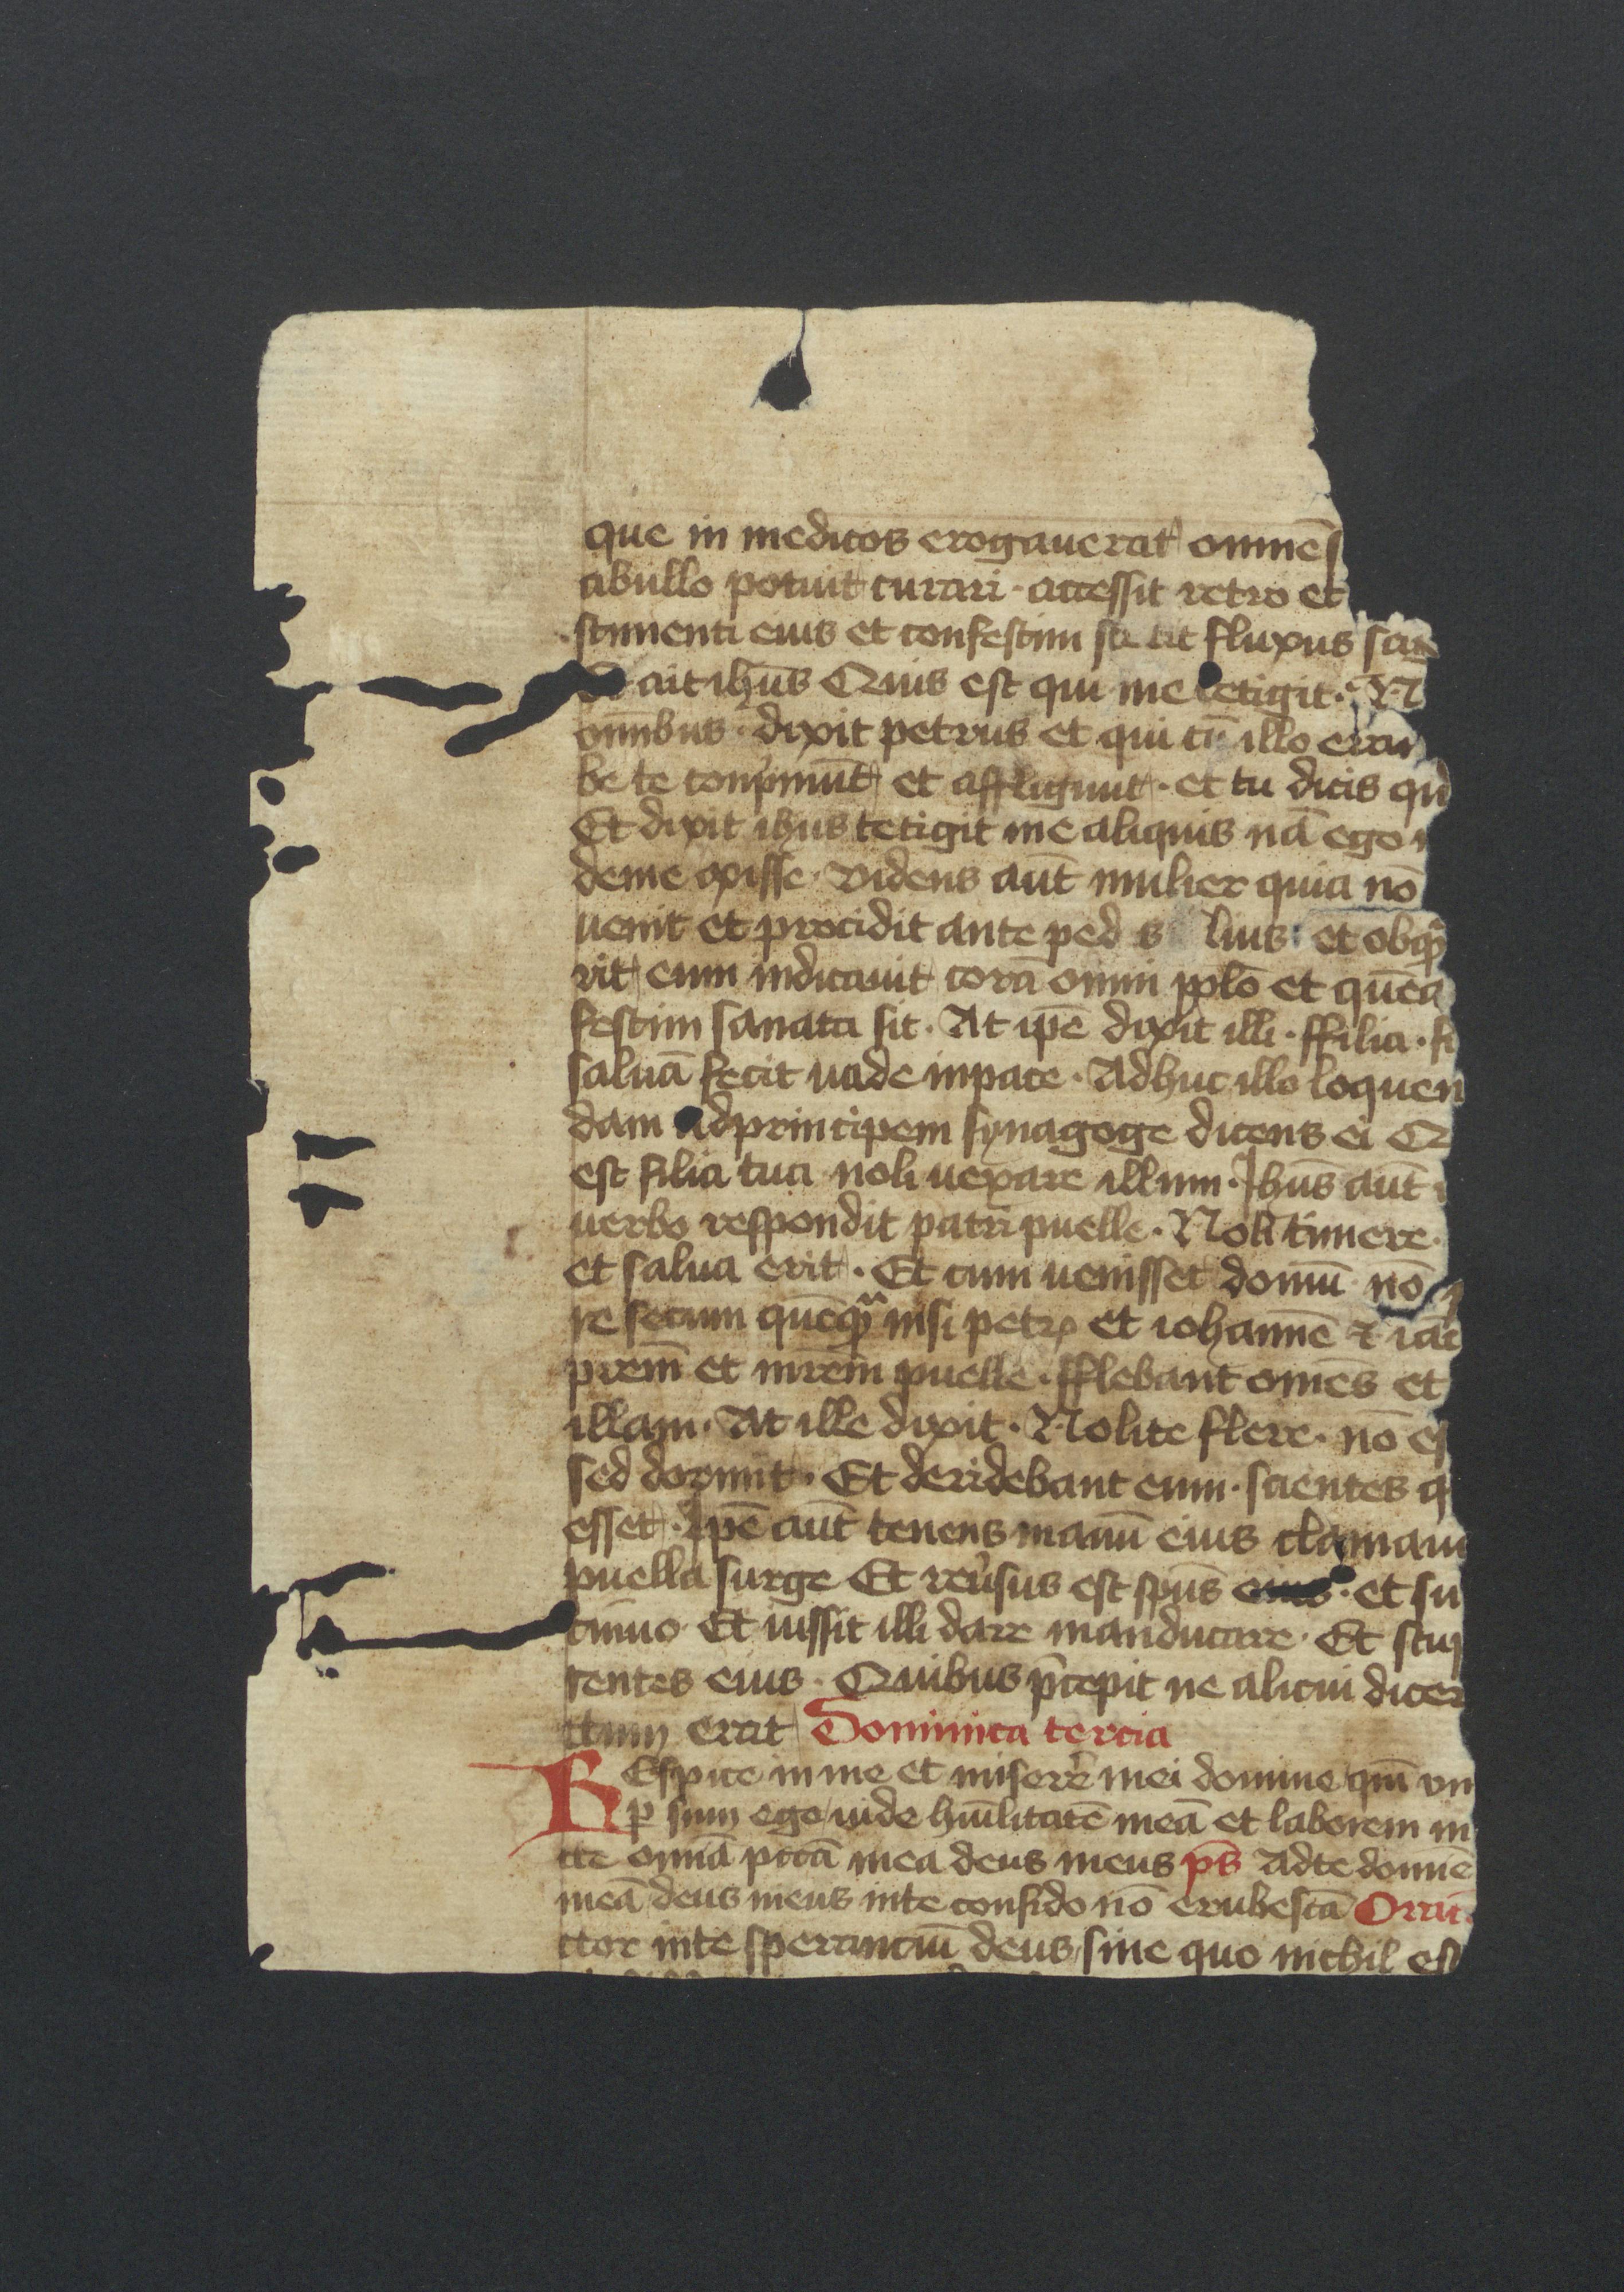 que in medicos erogauerat omnēſ
abullo potuit curari · accessit retro et
stimenti eius et confestim ste tit fluxus san
ait ihūs Quis est qui me tetigit · N
omībus · dixit petrus et qui cū illo eran
be te conprimūt et affligunt · et tu dicis qui
Et dixit ihus tetigit me aliquis nā ego
deme exisse · Videns aūt mulier quia nō
uenit et procidit ante ped s lius · et obqᷓ
rit eum indicauit corā omni pplō et quēa
festim sanata sit · At ipē dixit illi · ffilia · fi
saluā fecit uade inpace · Adhuc illo loquen
dam adprincipem synagoge dicens ei Q
est filia tua noli uexare illum · Ihūs aūt
uerbo respondit patri puelle · Noli timere ·
et salua erit · Et cum uenisset domū nō
re secum quēqᷓ nisi petrꝝ et iohannē ⁊ iac
prem̄ et mrem̄ puelle · fflebant omēs et
illam · At ille dixit · Nolite flere · nō es
sed dormit · Et deridebant eum · scientes q
esset · Ipē aūt tenens manū eius clamaui
puella surge Et reu̓sus est spūs eius · et su
tinuo Et iussit illi dare manducare · Et stup
rentes eius · Quibus p̄cepit ne alicui dicer
ctum erat Dominica tercia
REspice in me et miserēre mei domine qm̄ vn
ꝑ sum ego uide hūilitatē meā et laborem m
tte omīa pccā mea deus meus pſ̄ Adte domīe
meā deus meus inte confido nō erubescā Orat̄
ctor inte sperantiū deus sine quo nichil est